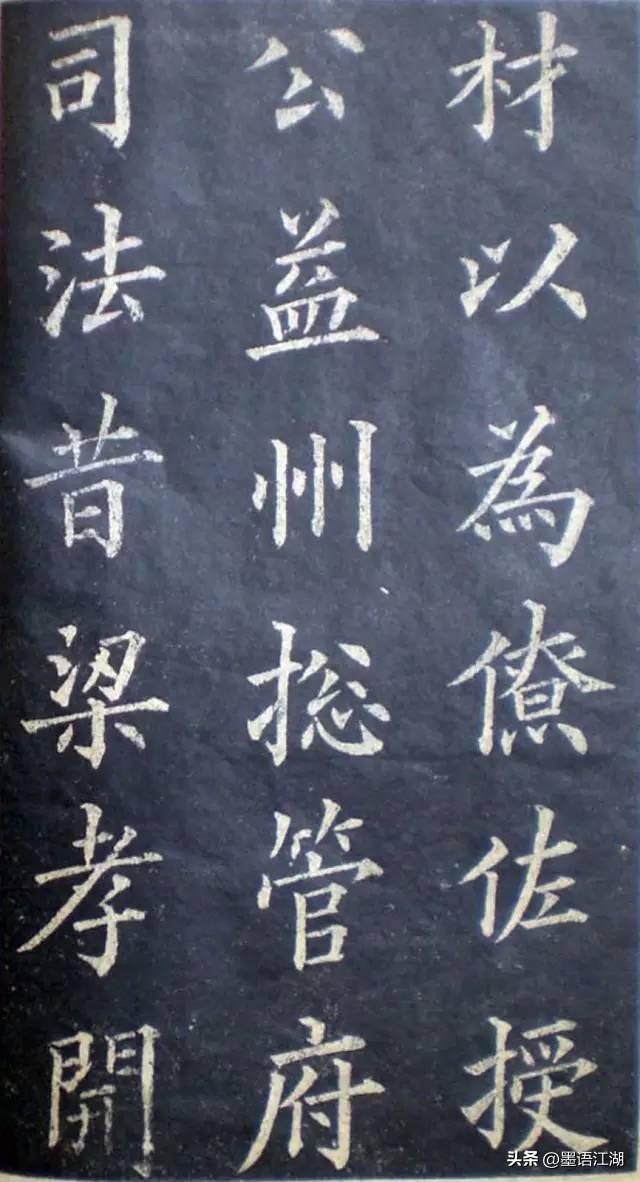 材以為僚佐授
公益州捴管府
司法昔梁孝開
头条 @墨语江湖